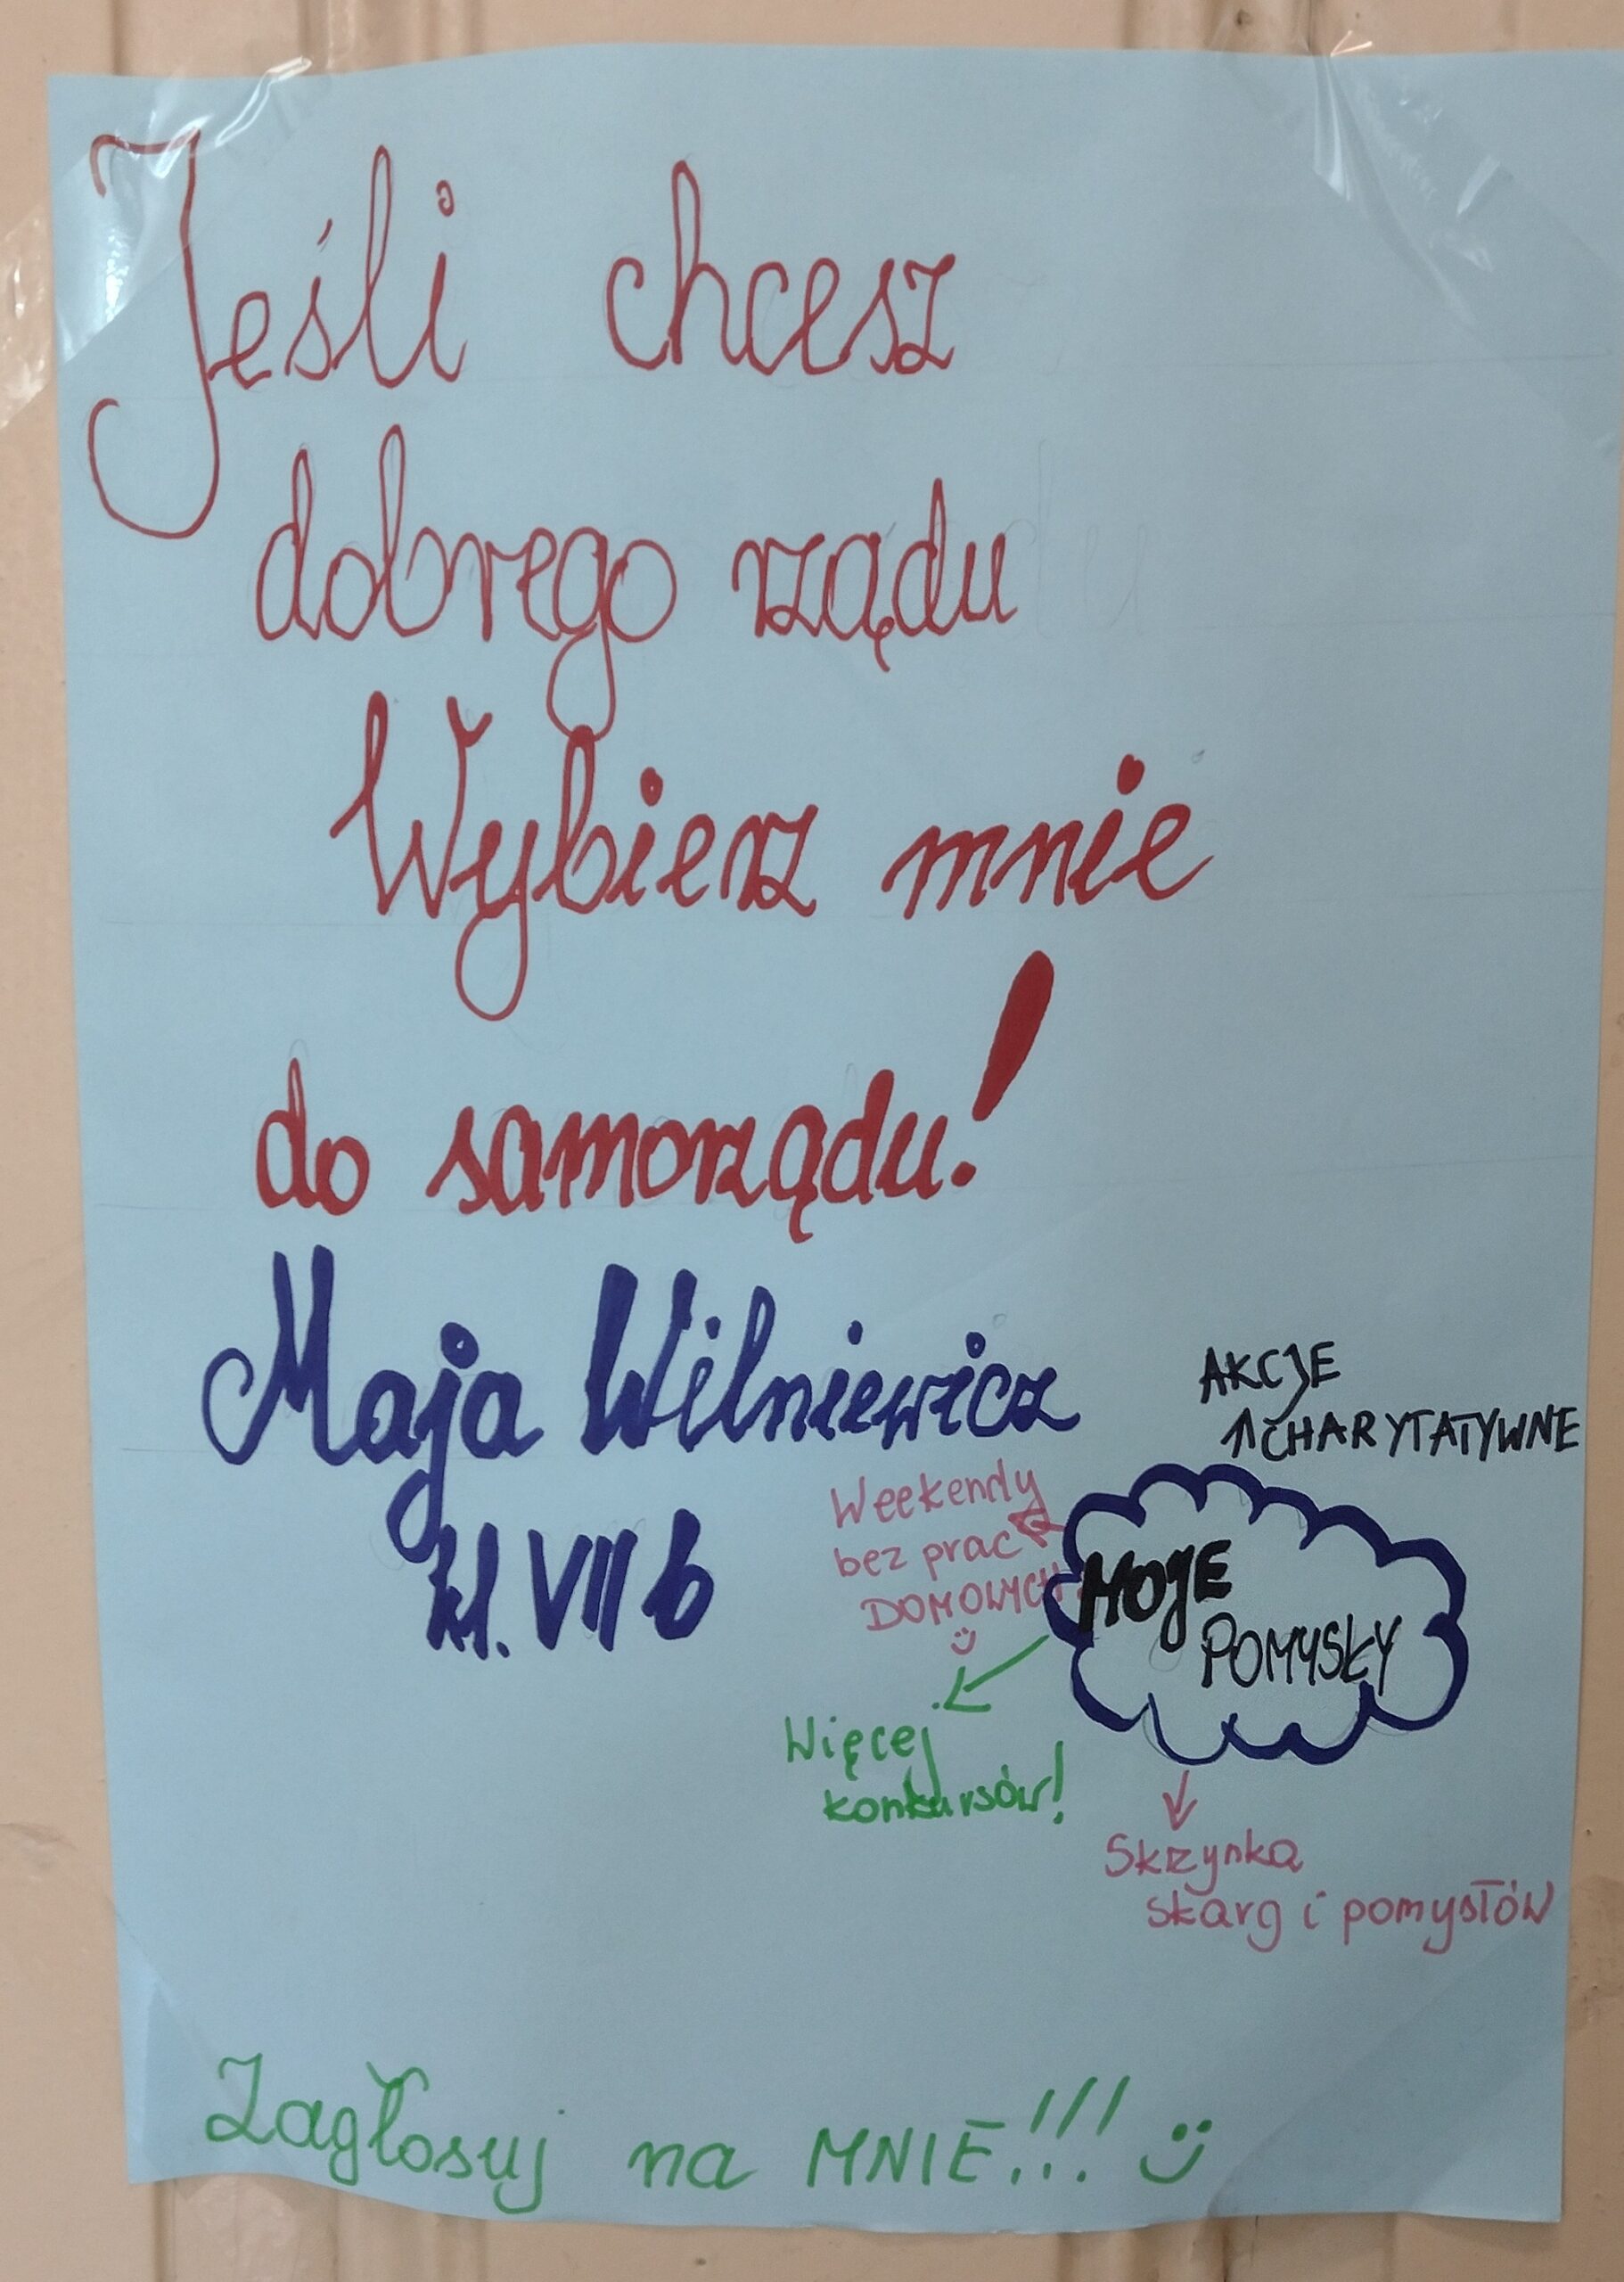 Jeśli chcesz
dobrego rządu
Wybierz mnie
do samorządu!
Maja Wilniewicz
kl. VII b
AKCJE
CHARYTATYWNE
Weekendy
bez prac
DOMOWYCH
MOJE
POMYSŁY
Więcej
konkursów!
Skrzynka
skarg i pomysłów
Zagłosuj na MNIE!!! :)